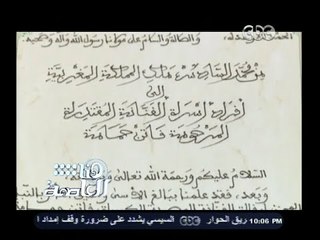 CBC
والصلاة والسلام على مولانا رسول الله وآله وصحبه
من محمد السادس ملك المملكة المغربية
إلى
أفراد أسرة الفنانة المقتدرة
المرحومة فاتن حمامة
السلام عليكم ورحمة الله تعالى وبركاته
وبعد، فقد علمنا ببالغ الأسى
هنا العاصمة
ريق الحوار السيسي يشدد على ضرورة وقف إمداد ا 10:06 PM